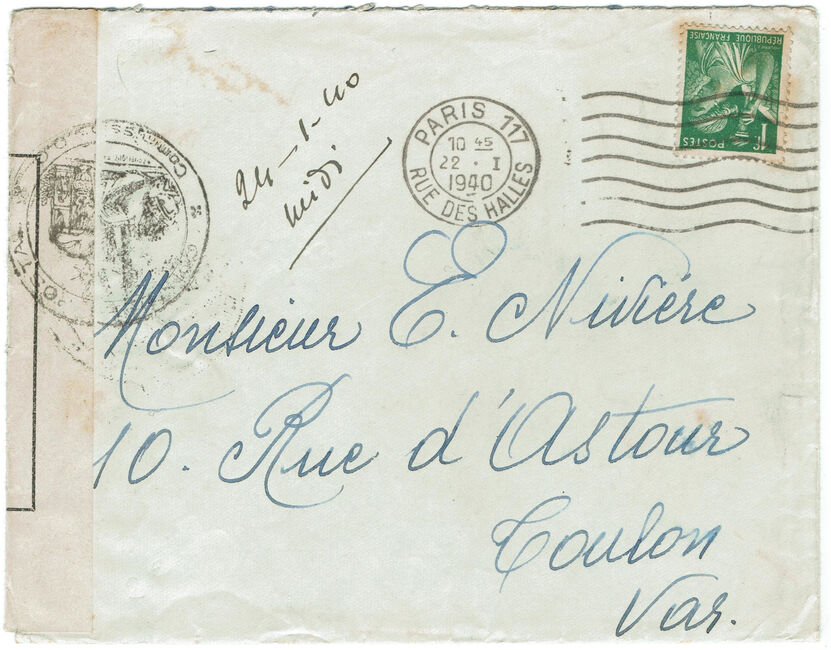 RÉPUBLIQUE FRANÇAISE
POSTES 1F
PARIS 117
10 45
22 · I
1940
RUE DES HALLES
24-1-40
midi
Monsieur E. Nivière
10. Rue d'Astour
Toulon
Var.